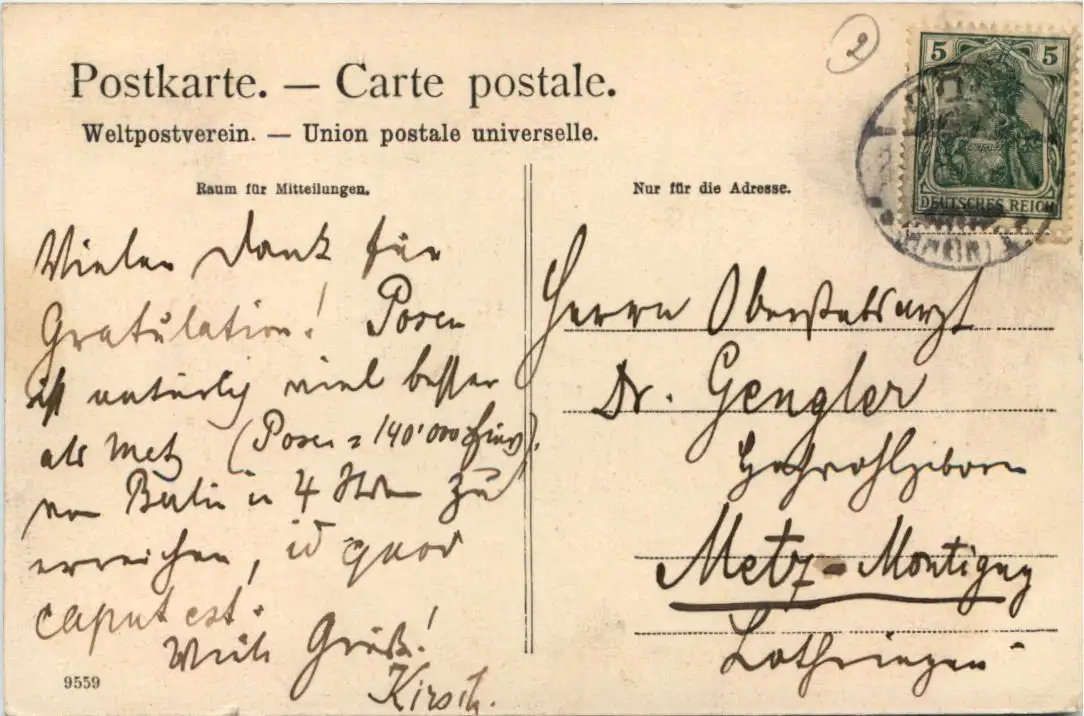 2
5 5
DEUTSCHES REICH
Postkarte. — Carte postale.
Weltpostverein. — Union postale universelle.
Raum für Mitteilungen.
Vielen Dank für
Gratulation! Posen
ist natürlich viel besser
als Metz (Posen = 140'000 Einw).
von Berlin in 4 Stdn zu
erreichen, id quod
caput est.
Viele Grüße!
Kirsch.
9559
Nur für die Adresse.
Herrn Oberstabsarzt
Dr. Gengler
Hochwohlgeboren
Metz-Montigny
Lothringen